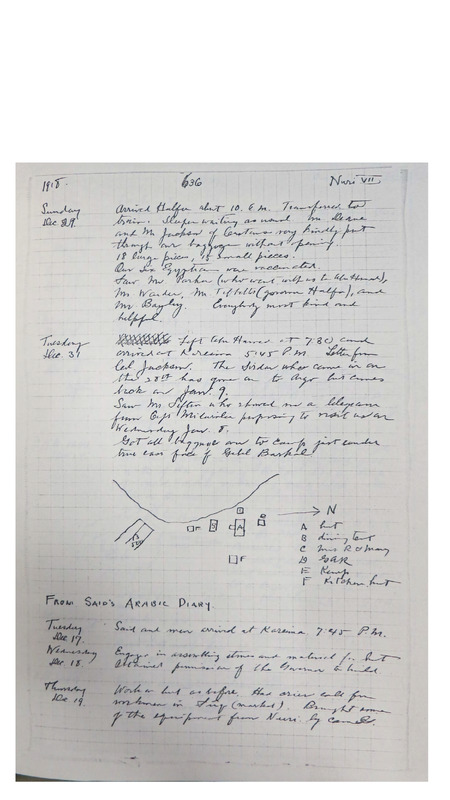 1918. 636 Nuri VII
Sunday Arrived Halfa about 10. A.M. Transferred to
Dec 29. train. Sleeper waiting as usual. Mr Deane
and Mr Jackson of Customs very kindly put
through our baggage without opening
18 large pieces, 15 small pieces.
Our six Egyptians were vaccinated.
Saw Mr Parker (who went with us to
Mr Wasden, Mr (governor Halfa), and
Mr Bagley. Everybody most kind and
helpful.
Tuesday Left Abu Hamed at 7.30 and
Dec. 31 arrived at Kareima 5:45 P.M. Letter from
Col Jackson. The Sirdar who came in on
the 28th has gone on to Argo but comes
back on Jan. 9.
Saw Mr who showed me a telegram
from Capt proposing to visit us on
Wednesday Jan 8.
Got all baggage over to camp just under
true east face of Gebel Barkal.
N
A hut
B dining tent
C Mrs R & Mary
D GAR
E Kemp
F Kitchen hut
F B C A D E
F
FROM SAID'S ARABIC DIARY
Tuesday Said and men arrived at Kareima 7.45 P.M.
Dec. 17.
Wednesday Engaged in assembling stones and material for hut
Dec. 18 Obtained permission of the Governor to build.
Thursday Work on hut as before. Had crier call for
Dec 19. workmen in Suq (market). Brought some
of the equipment from Nuri by camel.